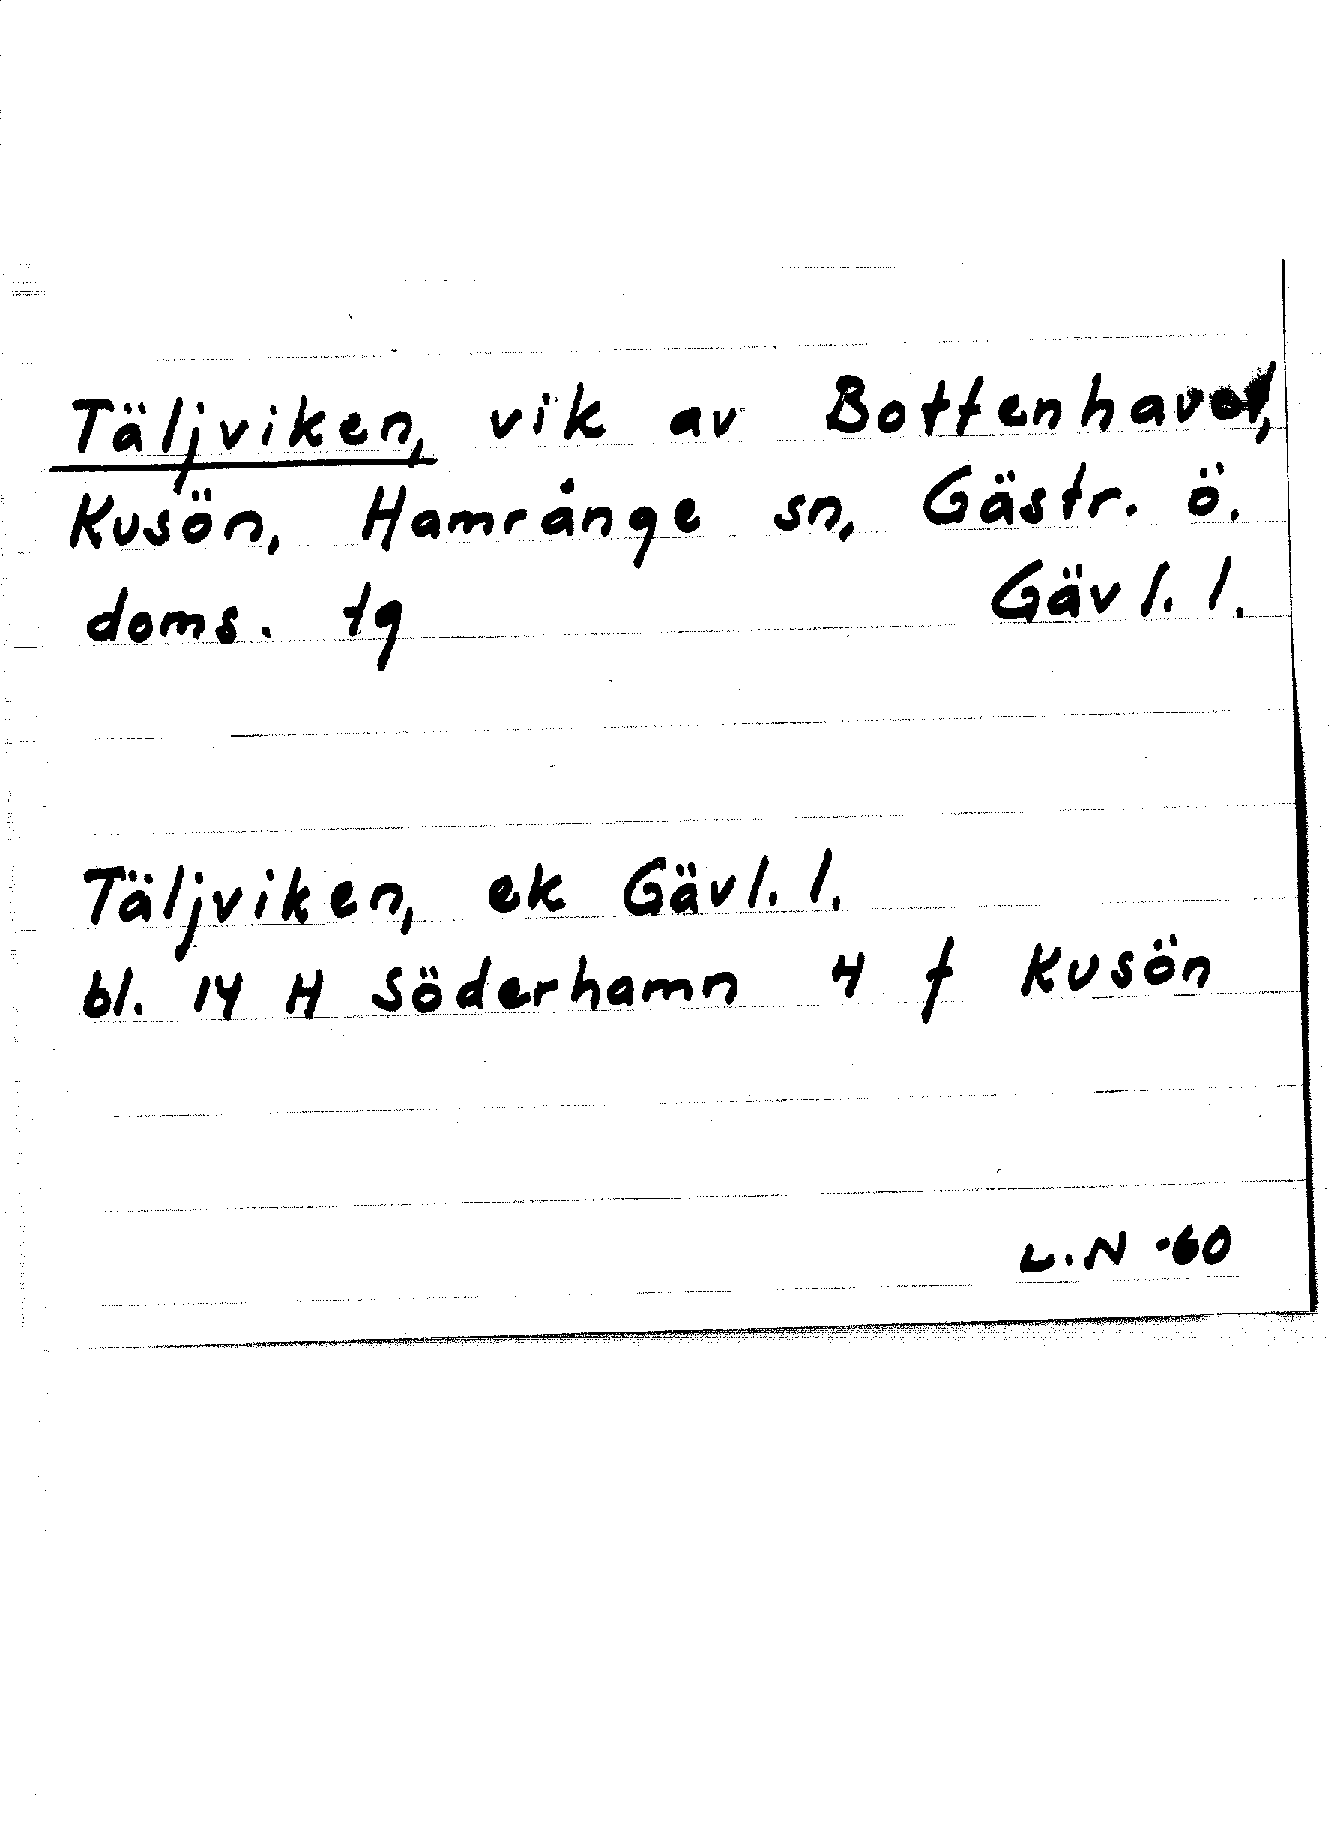 Täljviken, vik av Bottenhavet,
Kusön, Hamrånge sn, Gästr. ö.
doms. tg Gävl. l.
Täljviken, ek Gävl. l.
bl. 14 H Söderhamn 4 f Kusön
L.N -60